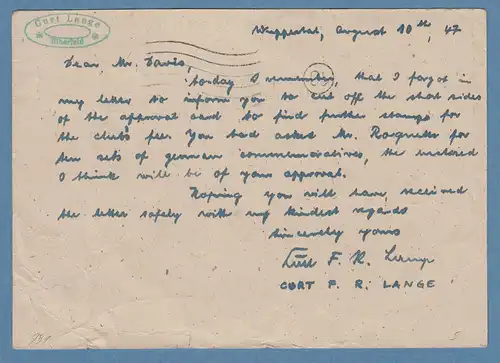 Curt Lange
Elberfeld
Wuppertal, August 10th, 47
Dear Mr. Davis,
to-day I remember, that I forgot in
my letter to inform you to cut off the short sides
of the approval card to find further stamps for
the club's fee. You had asked Mr. Roquette for
ten sets of german commemoratives, the enclosed
I think will be of your approval.
Hoping you will have received
the letter safely with my kindest regards
sincerely yours
Curt F. R. Lange
CURT F. R. LANGE